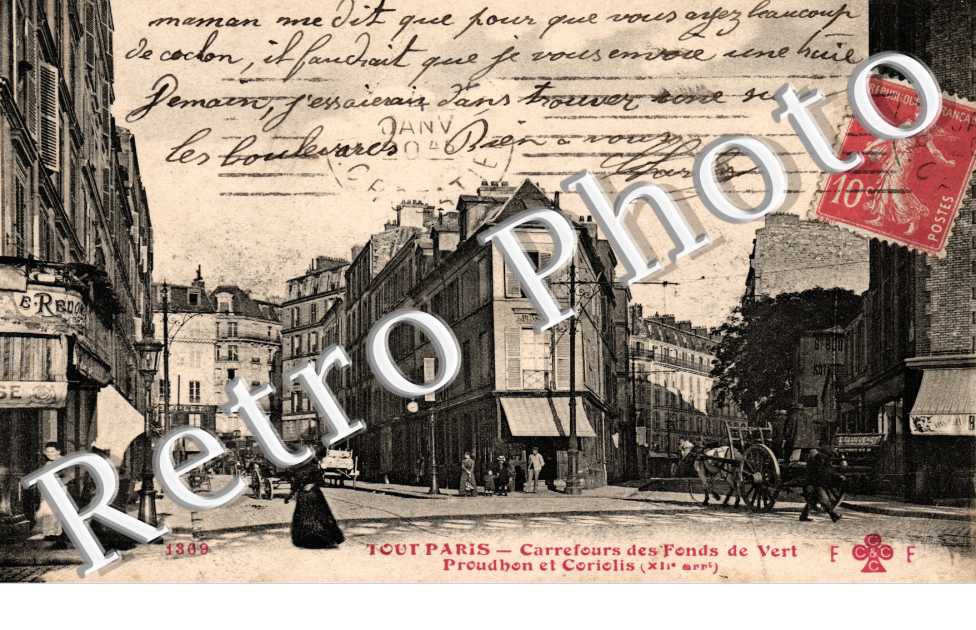 maman me dit que pour que vous ayez beaucoup
de cochon, il faudrait que je vous envoie une huile
Demain, j'essaierais dans trouver une
les boulevards Bien à vous
JANV
REPUBLIQUE FRANÇAISE
10
POSTES
Retro Photo
1369
TOUT PARIS — Carrefours des Fonds de Vert
Proudhon et Coriolis (XIIe arrt)
F
C
CCC
C
F